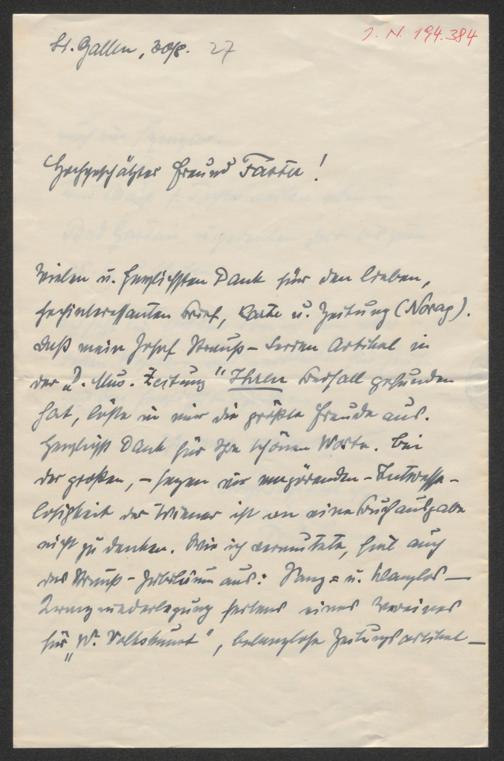 J. N. 194.384
St. Gallen, 30/8. 27
Hochgeschätzter Freund Farta!
Vielen u. herzlichsten Dank für den lieben,
hochinteressanten Brief, Karte u. Zeitung (Norag).
Daß mein Josef Strauß-Serien Artikel in
der "D. Mus. Zeitung" Ihren Beifall gefunden
hat, löste in mir die größte Freude aus.
Herzlichst Dank für Ihre schönen Worte. Bei
der großen, – sagen wir empörenden – Interesse-
losigkeit der Wiener ist an eine Buchausgabe
nicht zu denken. Wie ich vermutete, fiel auch
das Strauß-Jubiläum aus: Sang= u. klanglos –
Kranzniederlegung seitens eines Vereines
für "W. Volkskunst", belanglose Zeitungsartikel –